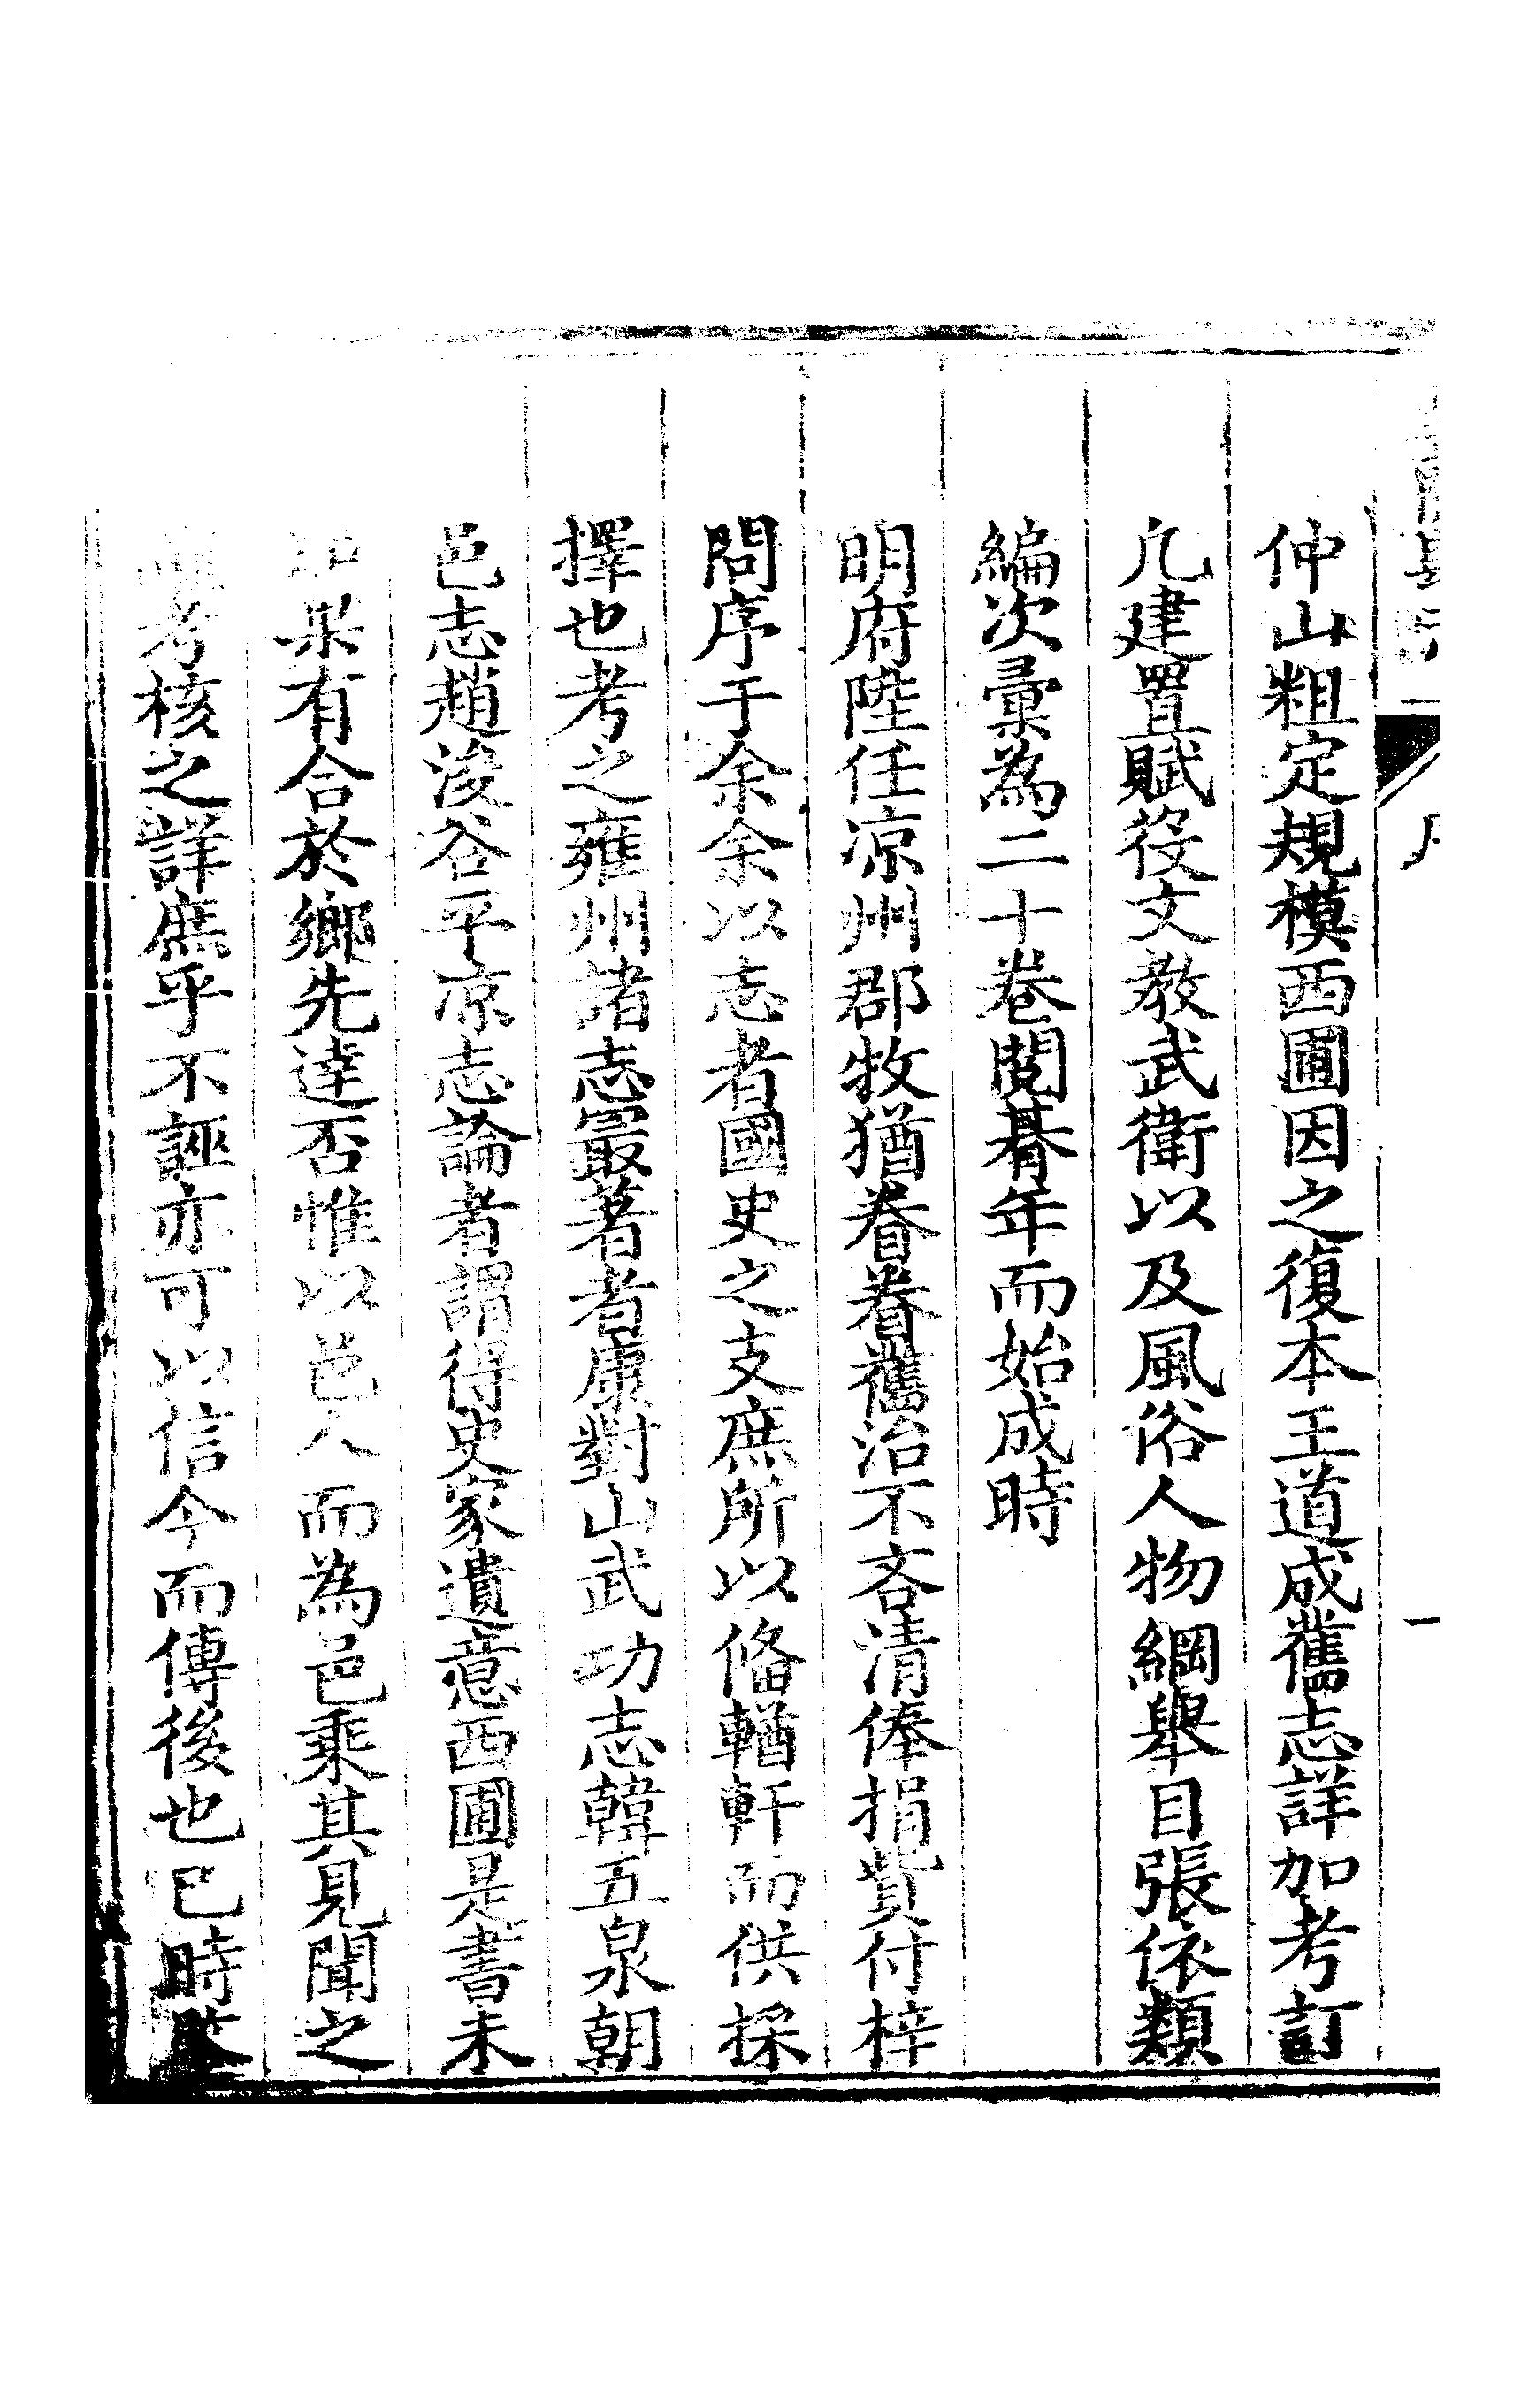 仲山粗定規模西圃因之復本王道成舊志詳加考訂
凢建置賦役文教武衛以及風俗人物綱舉目張依類
編次彙為二十卷閱朞年而始成時
明府陞任凉州郡牧猶眷眷舊治不吝清俸捐貲付梓
問序于余余以志者國史之支庶所以偹輶軒而供採
擇也考之雍州諸志最著者康對山武功志韓五泉朝
邑志趙浚谷平凉志論者謂得史家遺意西圃是書未
知果有合於鄉先達否惟以邑人而為邑乘其見聞之
考核之詳庶乎不誣亦可以信今而傳後也已時
一